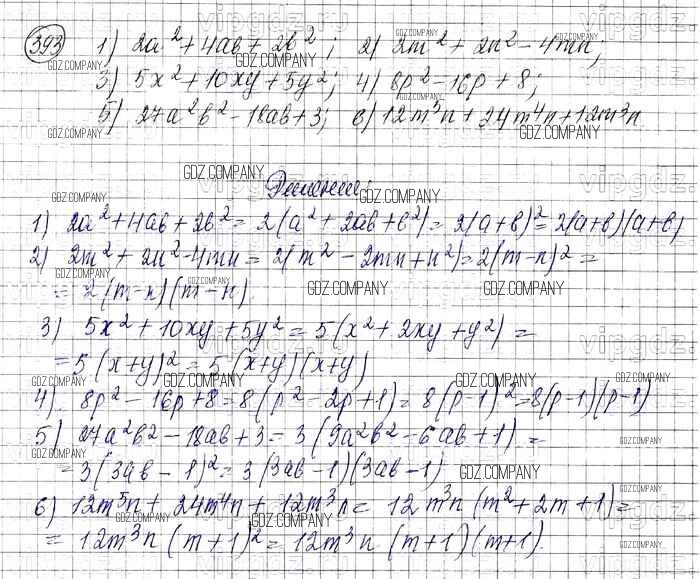 393 1) 2a² + 4ab + 2b²; 2) 2m² + 2n² - 4mn;
3) 5x² + 10xy + 5y²; 4) 8p² - 16p + 8;
5) 27a²b² - 18ab + 3; 6) 12m⁵n + 24m⁴n + 12m³n
Решение:
1) 2a² + 4ab + 2b² = 2(a² + 2ab + b²) = 2(a+b)² = 2(a+b)(a+b)
2) 2m² + 2n² - 4mn = 2(m² - 2mn + n²) = 2(m-n)² =
= 2(m-n)(m-n).
3) 5x² + 10xy + 5y² = 5(x² + 2xy + y²) =
= 5(x+y)² = 5(x+y)(x+y)
4) 8p² - 16p + 8 = 8(p² - 2p + 1) = 8(p-1)² = 8(p-1)(p-1)
5) 27a²b² - 18ab + 3 = 3(9a²b² - 6ab + 1) =
= 3(3ab - 1)² = 3(3ab-1)(3ab-1)
6) 12m⁵n + 24m⁴n + 12m³n = 12m³n(m² + 2m + 1) =
= 12m³n(m+1)² = 12m³n(m+1)(m+1).
GDZ.COMPANY
vipgdz.ru